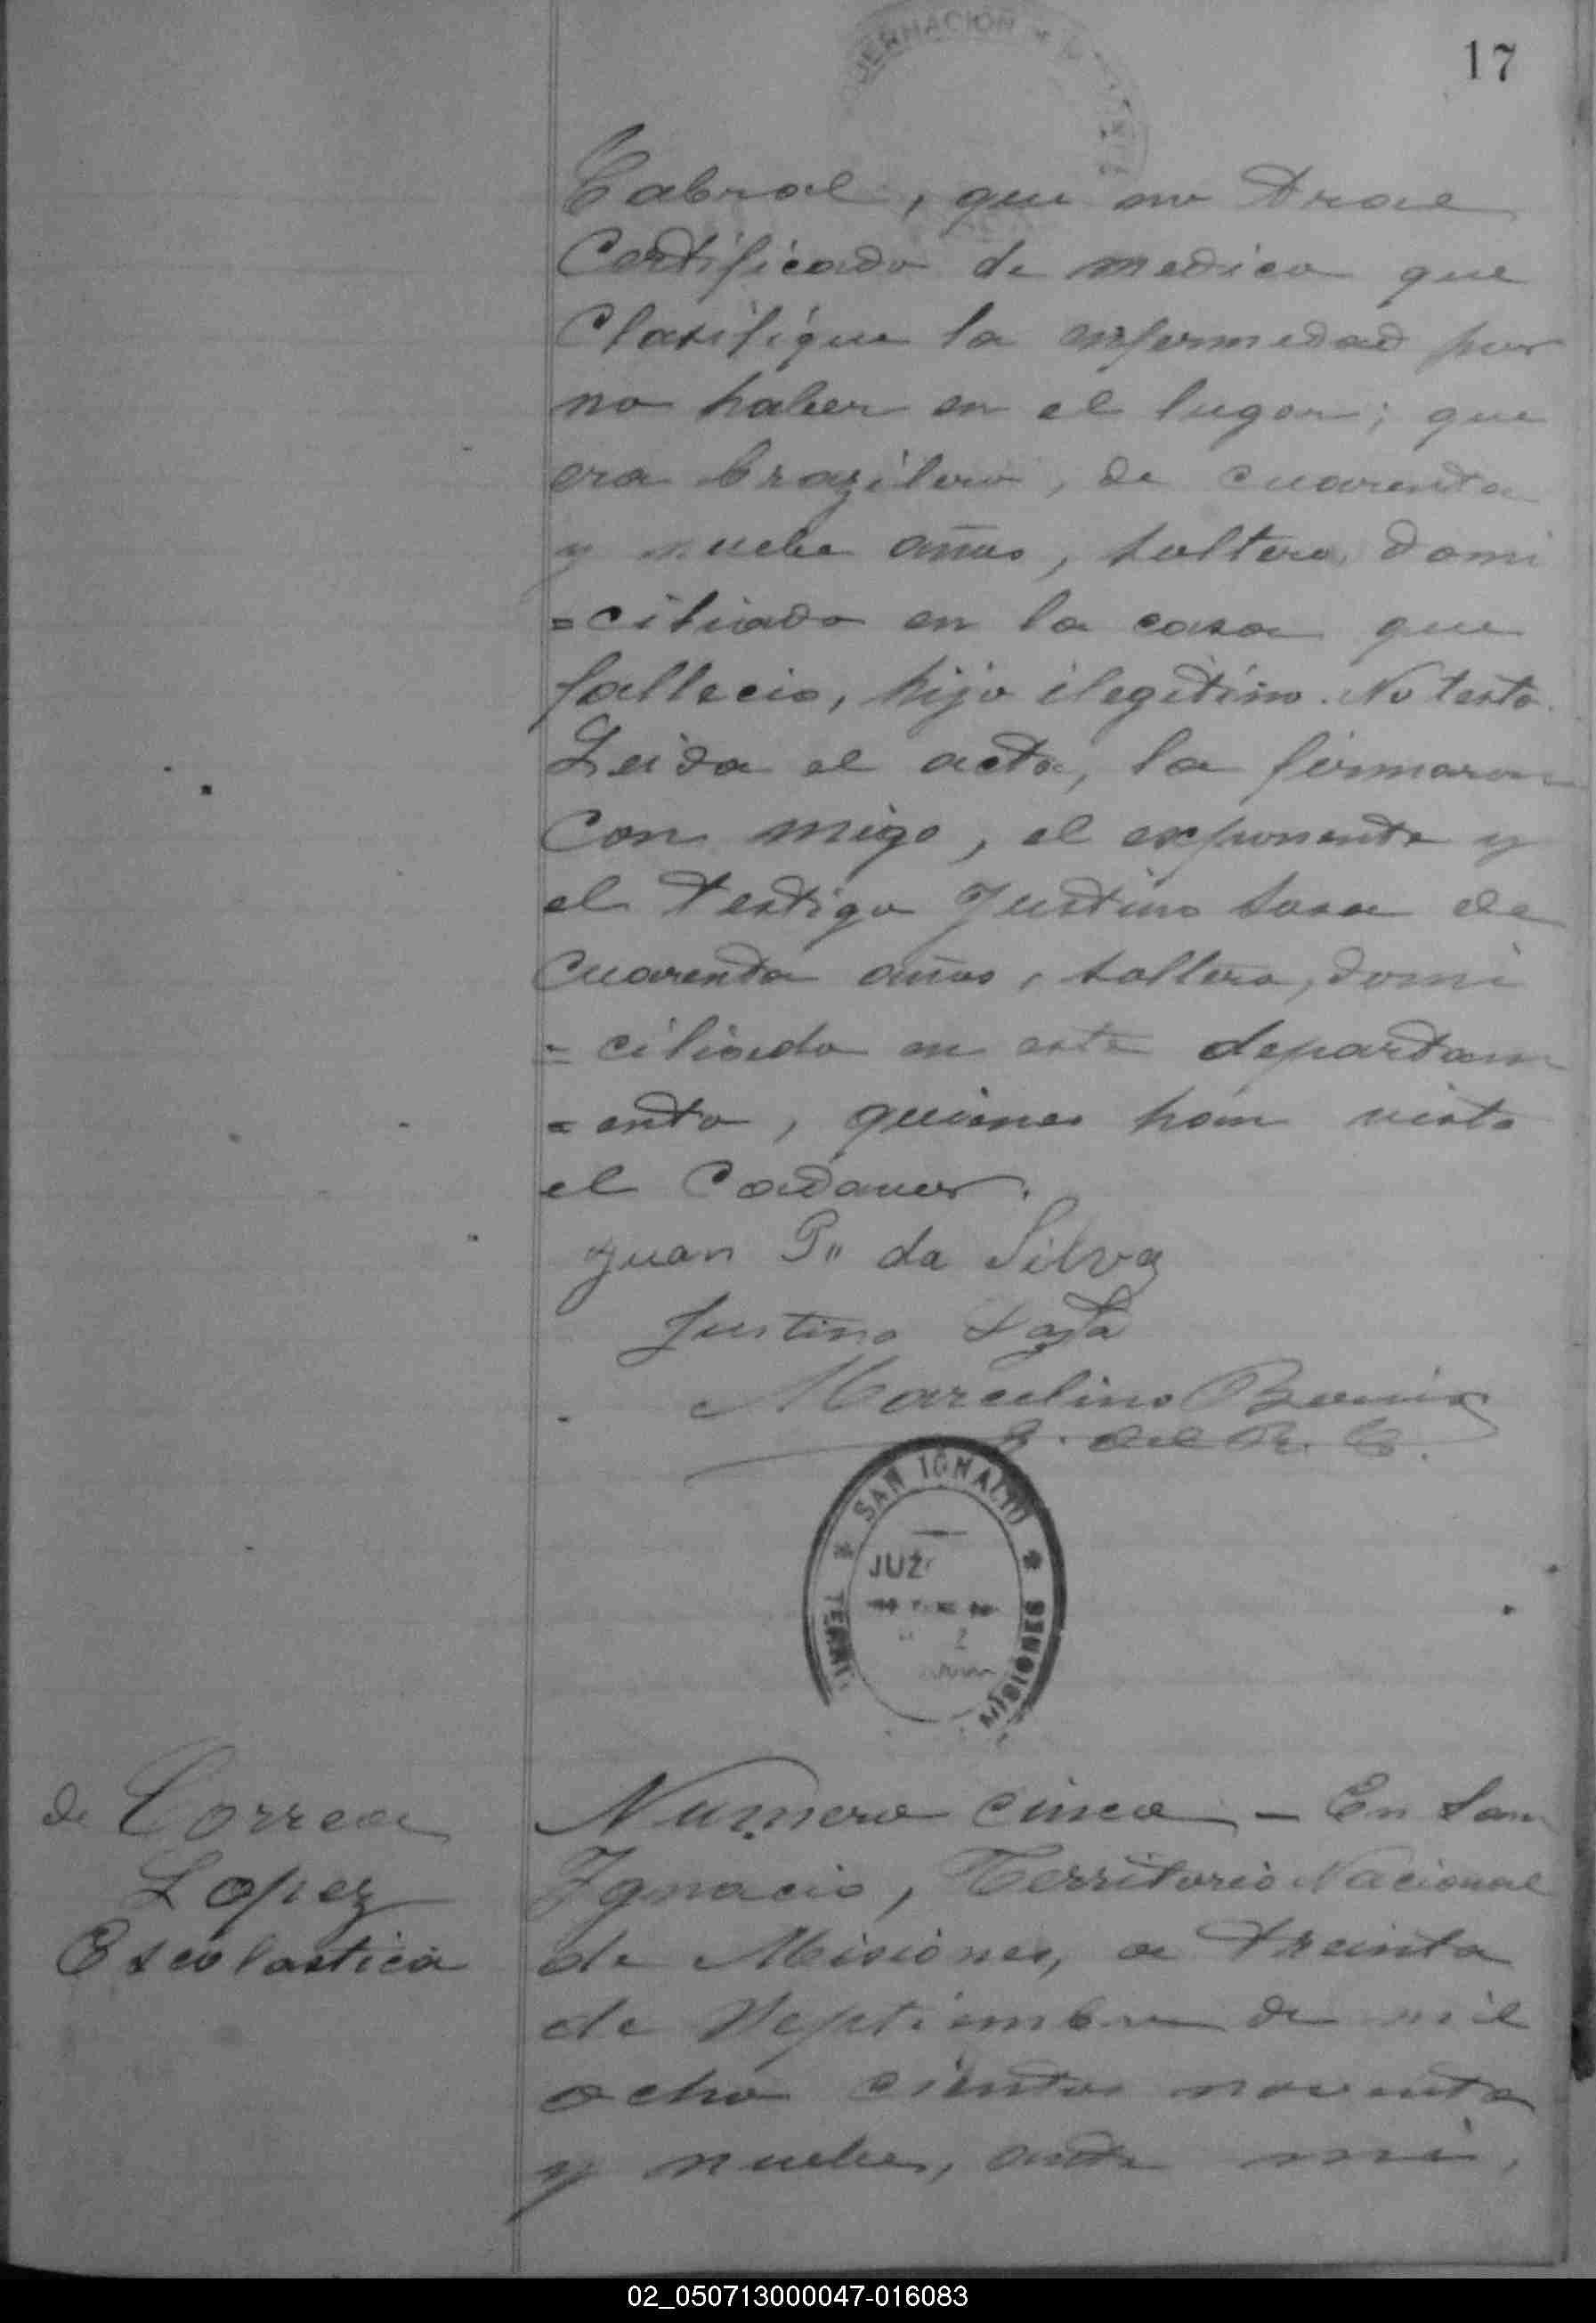 17
Cabral, que no trae
Certificado de medico que
Clasifique la enfermedad por
no haber en el lugar; que
era brazilero, de cuarenta
y nuebe años, soltero, domi
=ciliado en la casa que
fallecio, hijo ilegitimo. No testo.
Leida el acta, la firmaron
Con migo, el exponente y
el testigo Justino Sosa de
Cuarenta años, soltero, domi
=ciliado en este departam
=ento, quienes han visto
el Cadaver.
Juan P. da Silva
Justino Sosa
Marcelino
J. del R. C.
SAN IGNACIO
JUZ
MISIONES
de Correa
Lopez
Escolastica
Numero cinco - En San
Ignacio, Territorio Nacional
de Misiones, a treinta
de Septiembre de mil
ocho cientos noventa
y nuebe, ante mi,
02_050713000047-016083